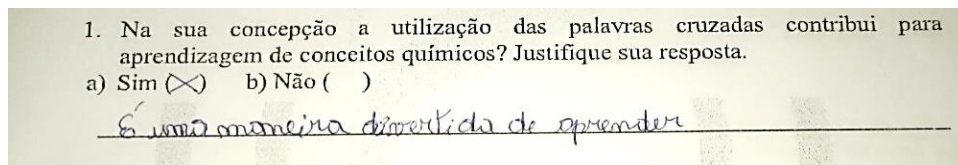 1. Na sua concepção a utilização das palavras cruzadas contribui para
aprendizagem de conceitos químicos? Justifique sua resposta.
a) Sim (X) b) Não ( )
É uma maneira divertida de aprender